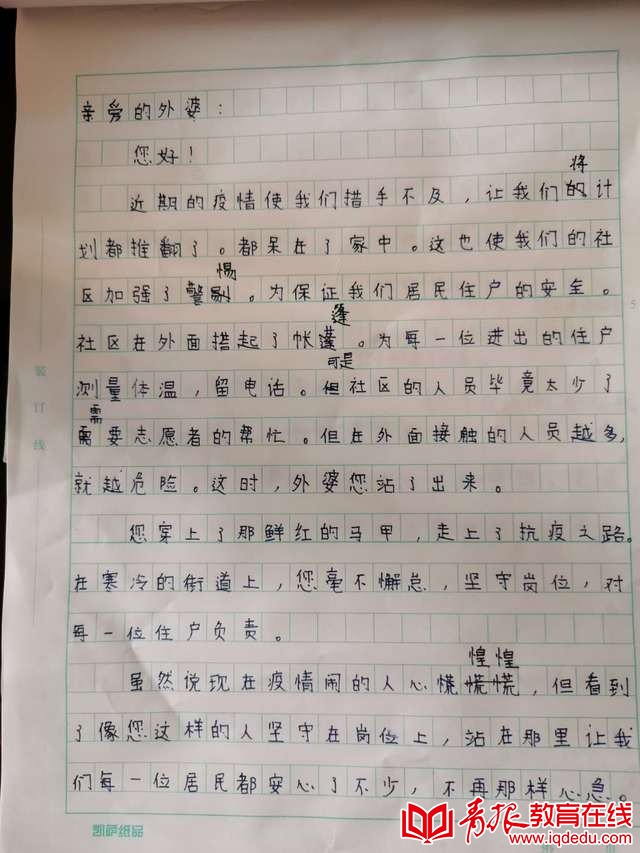 亲爱的外婆：
您好！
将
近期的疫情使我们措手不及，让我们的计
划都推翻了。都呆在了家中。这也使我们的社
惕
区加强了警剔。为保证我们居民住户的安全。
篷
社区在外面搭起了帐蓬。为每一位进出的住户
可是
测量体温，留电话。但社区的人员毕竟太少了
需
需要志愿者的帮忙。但在外面接触的人员越多，
就越危险。这时，外婆您站了出来。
您穿上了那鲜红的马甲，走上了抗疫之路。
在寒冷的街道上，您毫不懈怠，坚守岗位，对
每一位住户负责。
惶惶
虽然说现在疫情闹的人心慌慌慌，但看到
了像您这样的人坚守在岗位上，站在那里让我
们每一位居民都安心了不少，不再那样心急。
装订线
5
凯萨纸品
青报教育在线
www.iqdedu.com